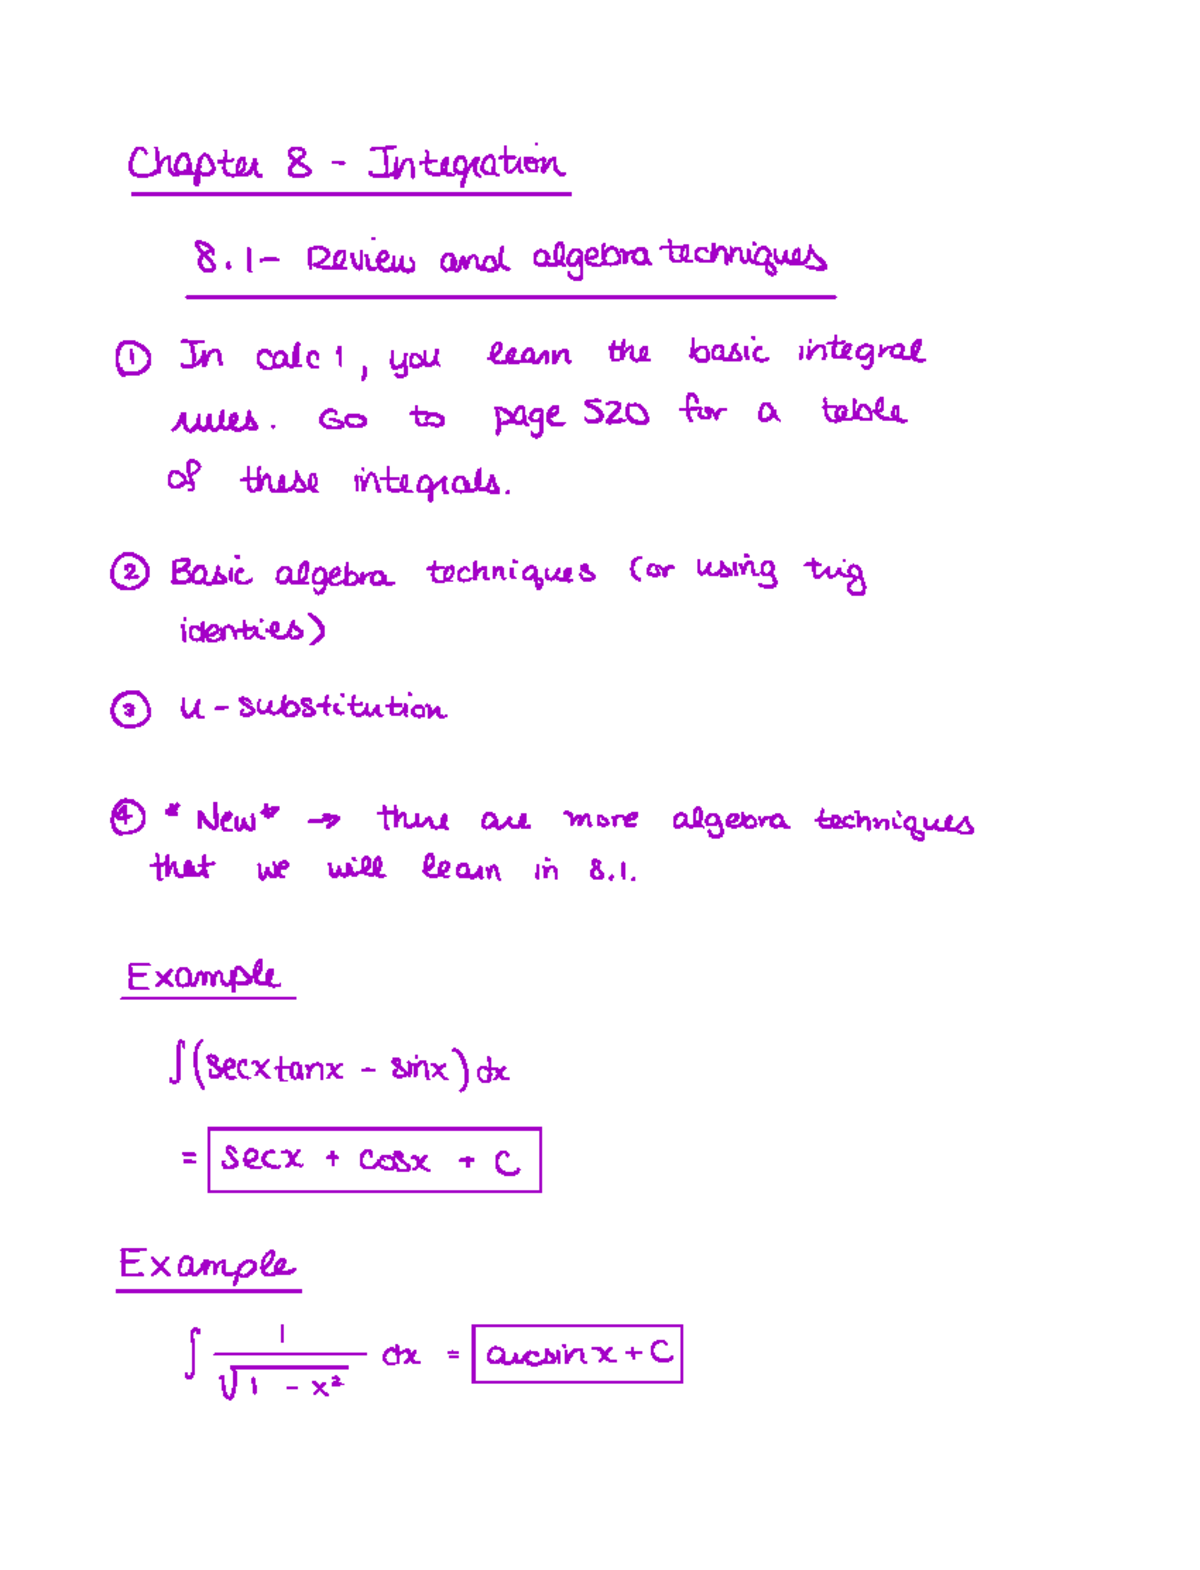 Chapter 8 - Integration
8.1- Review and algebra techniques
① In calc 1, you learn the basic integral
rules. Go to page 520 for a table
of these integrals.
② Basic algebra techniques (or using trig
identies)
③ u - substitution
④ *New* → there are more algebra techniques
that we will learn in 8.1.
Example
∫(secxtanx - sinx)dx
= secx + cosx + C
Example
∫ 1/√(1 - x²) dx = arcsinx + C